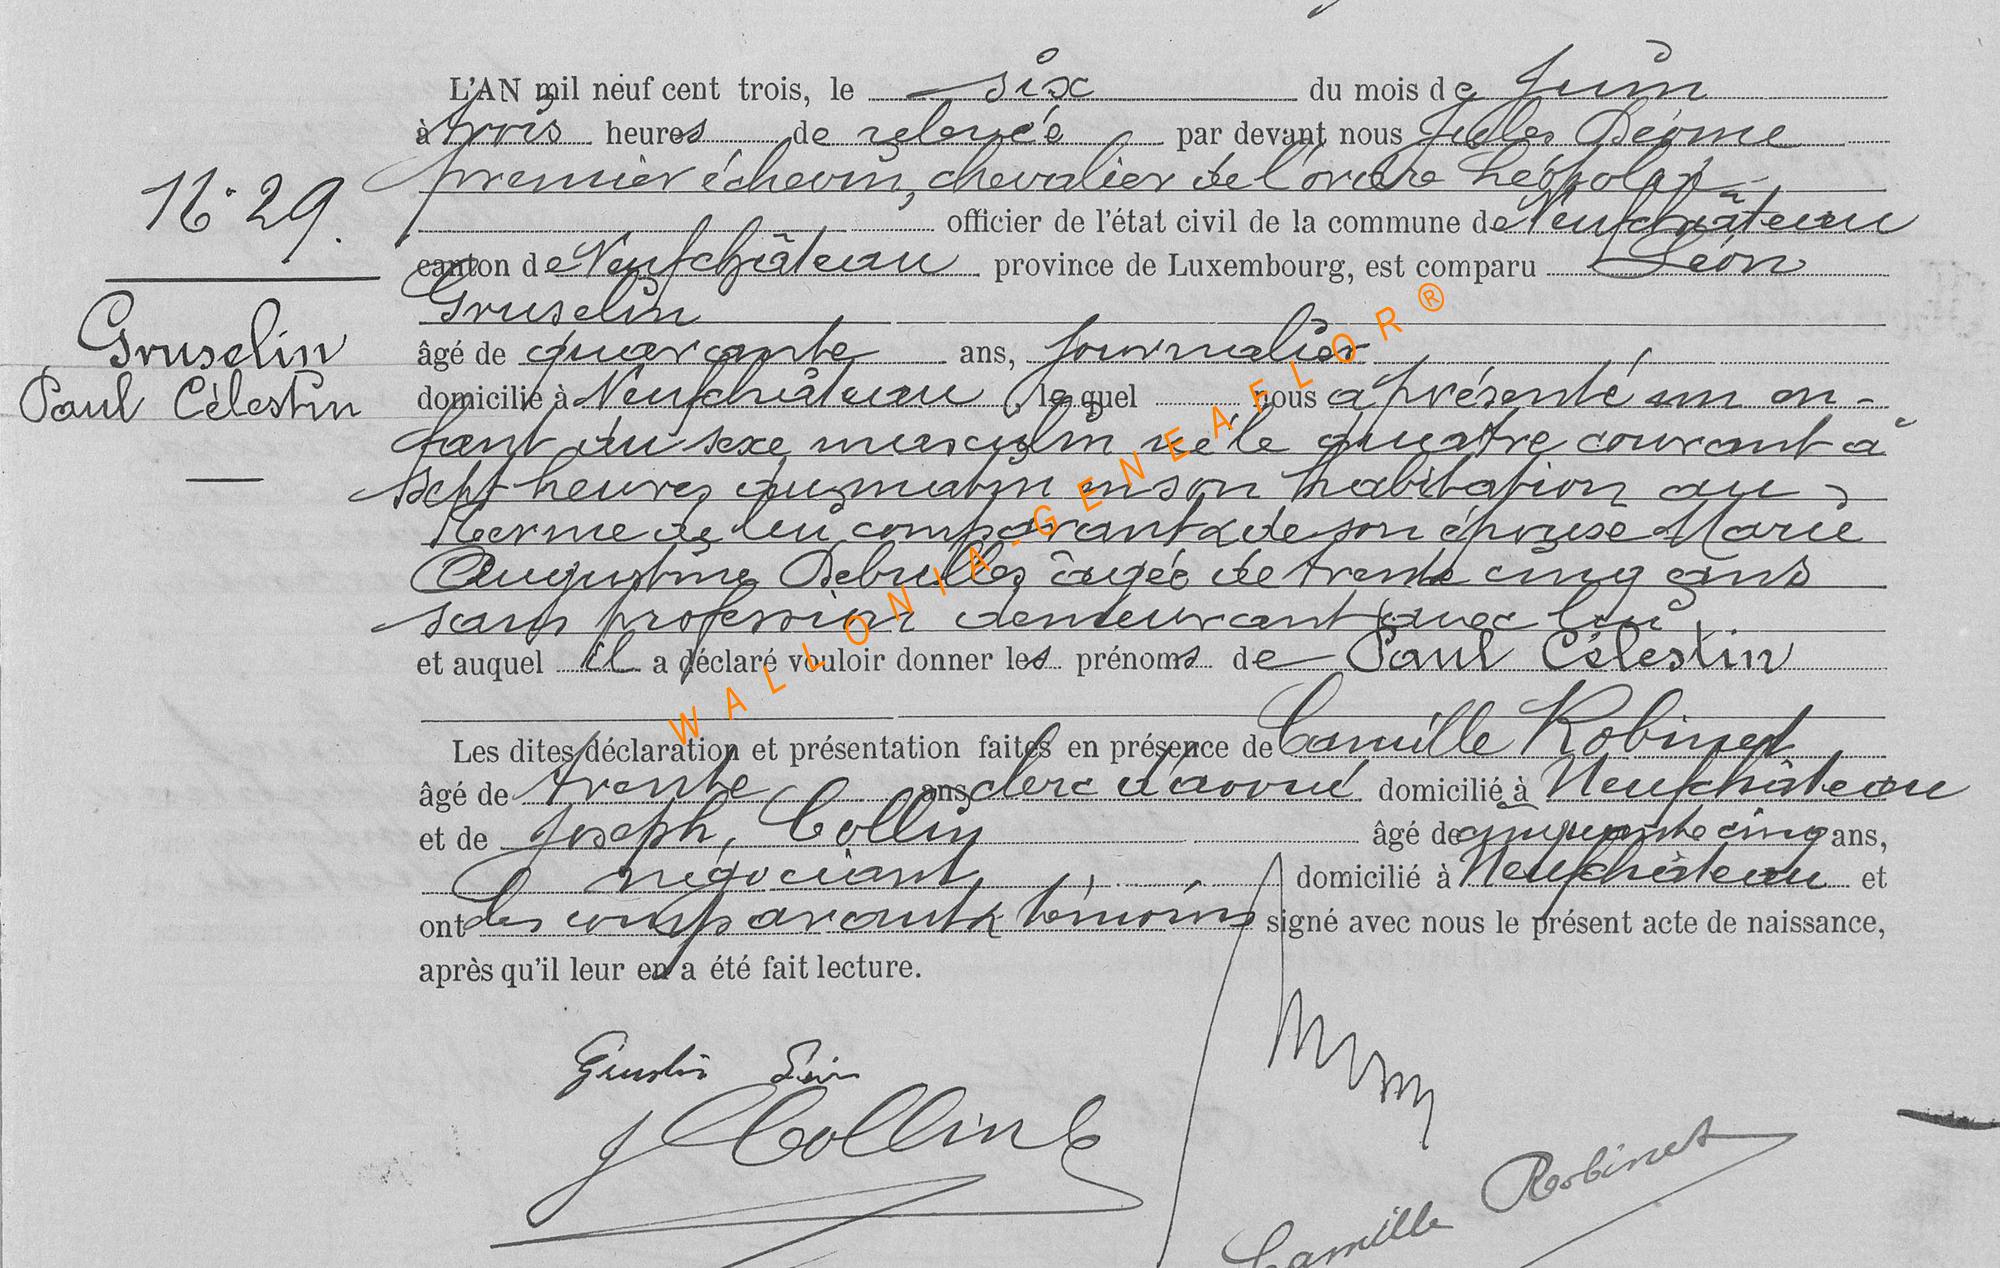 L'AN mil neuf cent trois, le six du mois de Juin
à trois heures de relevée par devant nous Jules Déome
premier échevin, chevalier de l'ordre Léopold
officier de l'état civil de la commune de Neufchâteau
N° 29.
canton de Neufchâteau province de Luxembourg, est comparu Léon
Gruselin
Gruselin
Paul Célestin
âgé de quarante ans, journalier
domicilié à Neufchâteau, lequel nous a présenté un en-
fant du sexe masculin né le quatre courant à
sept heures du matin en son habitation au
Terme de lui comparant & de son épouse Marie
Augustine âgée de trente cinq ans
sans profession demeurant avec lui
et auquel il a déclaré vouloir donner les prénoms de Paul Célestin
Les dites déclaration et présentation faites en présence de Camille Robinet
âgé de trente ans clerc d'avoué domicilié à Neufchâteau
et de Joseph, Collin âgé de cinquante cinq ans,
négociant domicilié à Neufchâteau et
ont les comparant & témoins signé avec nous le présent acte de naissance,
après qu'il leur en a été fait lecture.
Gruslin Léon
J Collin
Camille Robinet
WALLONIA-GENEAFLOR®